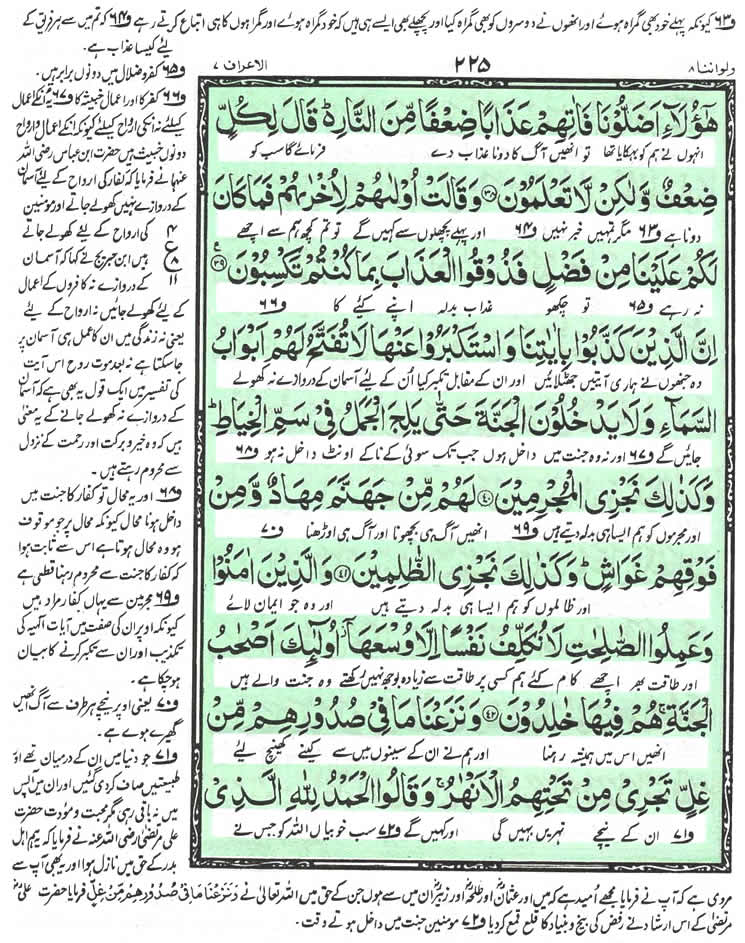 و۶۳ کیونکہ پہلے خود بھی گمراہ ہوئے اور انھوں نے دوسروں کو بھی گمراہ کیا اور پچھلے بھی ایسے ہی ہیں کہ خود گمراہ ہوئے اور گمراہوں کا ہی اتباع کرتے رہے و۶۴ کہ تم میں سے ہر فریق کے
لئے کیسا عذاب ہے۔
ولواننا ۸
۲۲۵
الاعراف ۷
هٰۤؤُلَآءِ اَضَلُّوْنَا فَاٰتِهِمْ عَذَابًا ضِعْفًا مِّنَ النَّارِ۬ؕ قَالَ لِكُلٍّ
انہوں نے ہم کو بہکایا تھا تو انھیں آگ کا دونا عذاب دے فرمائے گا سب کو
ضِعْفٌ وَّلٰكِنْ لَّا تَعْلَمُوْنَ ۳۸ وَقَالَتْ اُوْلٰىهُمْ لِاُخْرٰىهُمْ فَمَا كَانَ
دونا ہے و۶۳ مگر تمہیں خبر نہیں و۶۴ اور پہلے پچھلوں سے کہیں گے تو تم کچھ ہم سے اچھے
لَكُمْ عَلَيْنَا مِنْ فَضْلٍ فَذُوْقُوا الْعَذَابَ بِمَا كُنْتُمْ تَكْسِبُوْنَ ۳۹
نہ رہے و۶۵ تو چکھو عذاب بدلہ اپنے کئے کا و۶۶
اِنَّ الَّذِيْنَ كَذَّبُوْا بِاٰيٰتِنَا وَاسْتَكْبَرُوْا عَنْهَا لَا تُفَتَّحُ لَهُمْ اَبْوَابُ
وہ جنھوں نے ہماری آیتیں جھٹلائیں اور ان کے مقابل تکبر کیا اُن کے لیئے آسمان کے دروازے نہ کھولے
السَّمَآءِ وَلَا يَدْخُلُوْنَ الْجَنَّةَ حَتّٰى يَلِجَ الْجَمَلُ فِيْ سَمِّ الْخِيَاطِؕ
جائیں گے و۶۷ اور نہ وہ جنت میں داخل ہوں جب تک سوئی کے ناکے اونٹ داخل نہ ہو و۶۸
وَكَذٰلِكَ نَجْزِي الْمُجْرِمِيْنَ ۴۰ لَهُمْ مِّنْ جَهَنَّمَ مِهَادٌ وَّمِنْ
اور مجرموں کو ہم ایسا ہی بدلہ دیتے ہیں و۶۹ انھیں آگ ہی بچھونا اور آگ ہی اوڑھنا و۷۰
فَوْقِهِمْ غَوَاشٍؕ وَكَذٰلِكَ نَجْزِي الظّٰلِمِيْنَ ۴۱ وَالَّذِيْنَ اٰمَنُوْا
اور ظالموں کو ہم ایسا ہی بدلہ دیتے ہیں اور وہ جو ایمان لائے
وَعَمِلُوا الصّٰلِحٰتِ لَا نُكَلِّفُ نَفْسًا اِلَّا وُسْعَهَاۤ اُولٰٓئِكَ اَصْحٰبُ
اور طاقت بھر اچھے کام کئے ہم کسی پر طاقت سے زیادہ بوجھ نہیں رکھتے وہ جنت والے ہیں
الْجَنَّةِۚ هُمْ فِيْهَا خٰلِدُوْنَ ۴۲ وَنَزَعْنَا مَا فِيْ صُدُوْرِهِمْ مِّنْ
انھیں اس میں ہمیشہ رہنا اور ہم نے ان کے سینوں میں سے کینے کھینچ لئے
غِلٍّ تَجْرِيْ مِنْ تَحْتِهِمُ الْاَنْهٰرُۚ وَقَالُوا الْحَمْدُ لِلّٰهِ الَّذِيْ
و۷۱ ان کے نیچے نہریں بہیں گی اور کہیں گے و۷۲ سب خوبیاں اللہ کو جس نے
و۶۵ کفر و ضلال میں دونوں برابر ہیں۔
و۶۶ کفر کا اور اعمال خبیثہ کا و۶۷ نہ انکے اعمال
کیلئے نہ انکی ارواح کیلئے کیونکہ انکے اعمال و ارواح
دونوں خبیث ہیں حضرت ابن عباس رضی اللہ
عنہما نے فرمایا کہ کفار کی ارواح کے لیئے آسمان
کے دروازے نہیں کھولے جاتے اور مومنین
کی ارواح کے لئے کھولے جاتے
ہیں ابن جریج نے کہا کہ آسمان
کے دروازے نہ کافروں کے اعمال
ع ۴ ۸ ۱۱
کے لیئے کھولے جائیں نہ ارواح کے لیئے
یعنی نہ زندگی میں ان کا عمل ہی آسمان پر
جا سکتا ہے نہ بعد موت روح اس آیت
کی تفسیر میں ایک قول یہ بھی ہے کہ آسمان
کے دروازے نہ کھولے جانے کے یہ معنیٰ
ہیں کہ وہ خیر و برکت اور رحمت کے نزول
سے محروم رہتے ہیں۔
و۶۸ اور یہ محال تو کفار کا جنت میں
داخل ہونا محال کیونکہ محال پر جو موقوف
ہو وہ محال ہوتا ہے اس سے ثابت ہوا
کہ کفار کا جنت سے محروم رہنا قطعی ہے
و۶۹ مجرمین سے یہاں کفار مراد ہیں
کیونکہ اوپر ان کی صفت میں آیات الٰہیہ کی
تکذیب اور ان سے تکبر کرنے کا بیان
ہو چکا ہے۔
و۷۰ یعنی اوپر نیچے ہر طرف سے آگ انھیں
گھیرے ہوئے ہے۔
و۷۱ جو دنیا میں ان کے درمیان تھے اور
طبیعتیں صاف کر دی گئیں اور ان میں آپس
میں نہ باقی رہی مگر محبت و مودت حضرت
علی مرتضٰی رضی اللہ عنہ نے فرمایا کہ یہ ہم اہل
بدر کے حق میں نازل ہوا اور یہ بھی آپ سے
مروی ہے کہ آپ نے فرمایا مجھے امید ہے کہ میں اور عثمان اور طلحہ اور زبیر ان میں سے ہوں جن کے حق میں اللہ تعالیٰ نے وَنَزَعْنَا مَا فِیْ صُدُوْرِهِمْ مِّنْ غِلٍّ فرمایا حضرت علی
مرتضٰی کے اس ارشاد نے رفض کی بیخ و بنیاد کا قلع قمع کر دیا و۷۲ مومنین جنت میں داخل ہوتے وقت۔